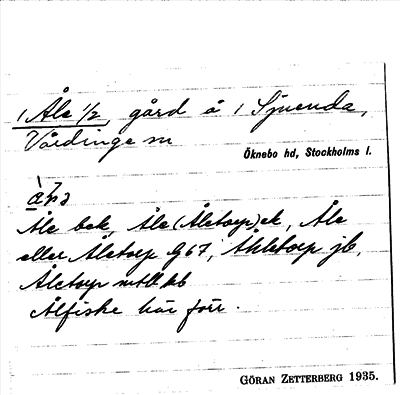 1 Åle 1/2, gård å 1 Sjuenda,
Vårdinge sn
Öknebo hd, Stockholms l.
Åle bek, Åle (Åletorp) ek, Åle
eller Åletorp Gj 67, Åhletorp jb,
Åletorp mtlkb
Ålfiske här förr.
GÖRAN ZETTERBERG 1935.